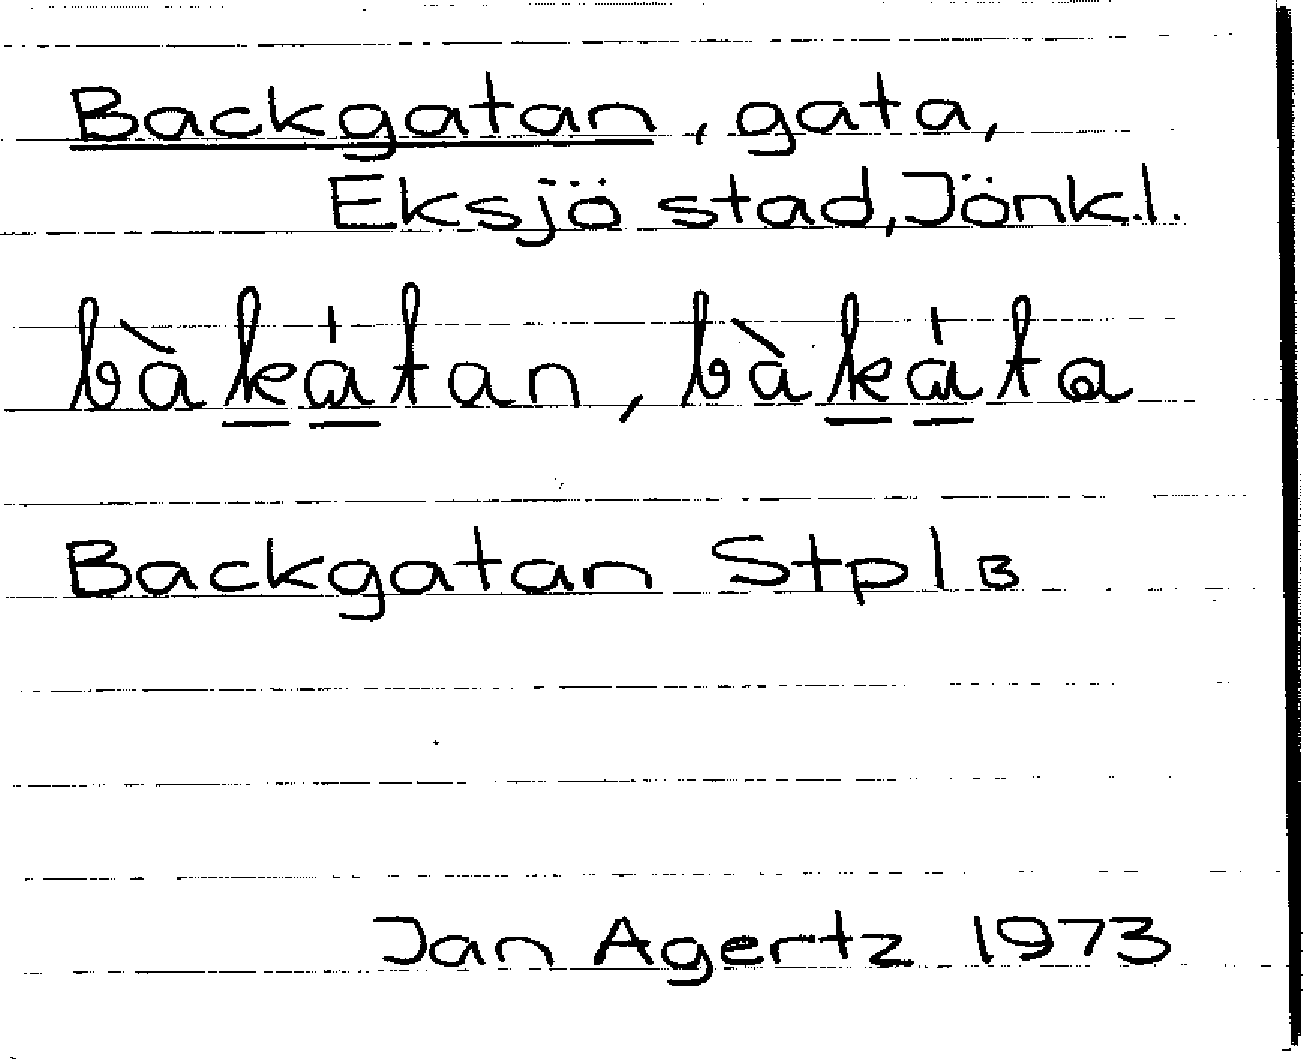 Backgatan, gata,
Eksjö stad, Jönk.l.
bàkátan, bàkáta
Backgatan Stpl B
Jan Agertz 1973